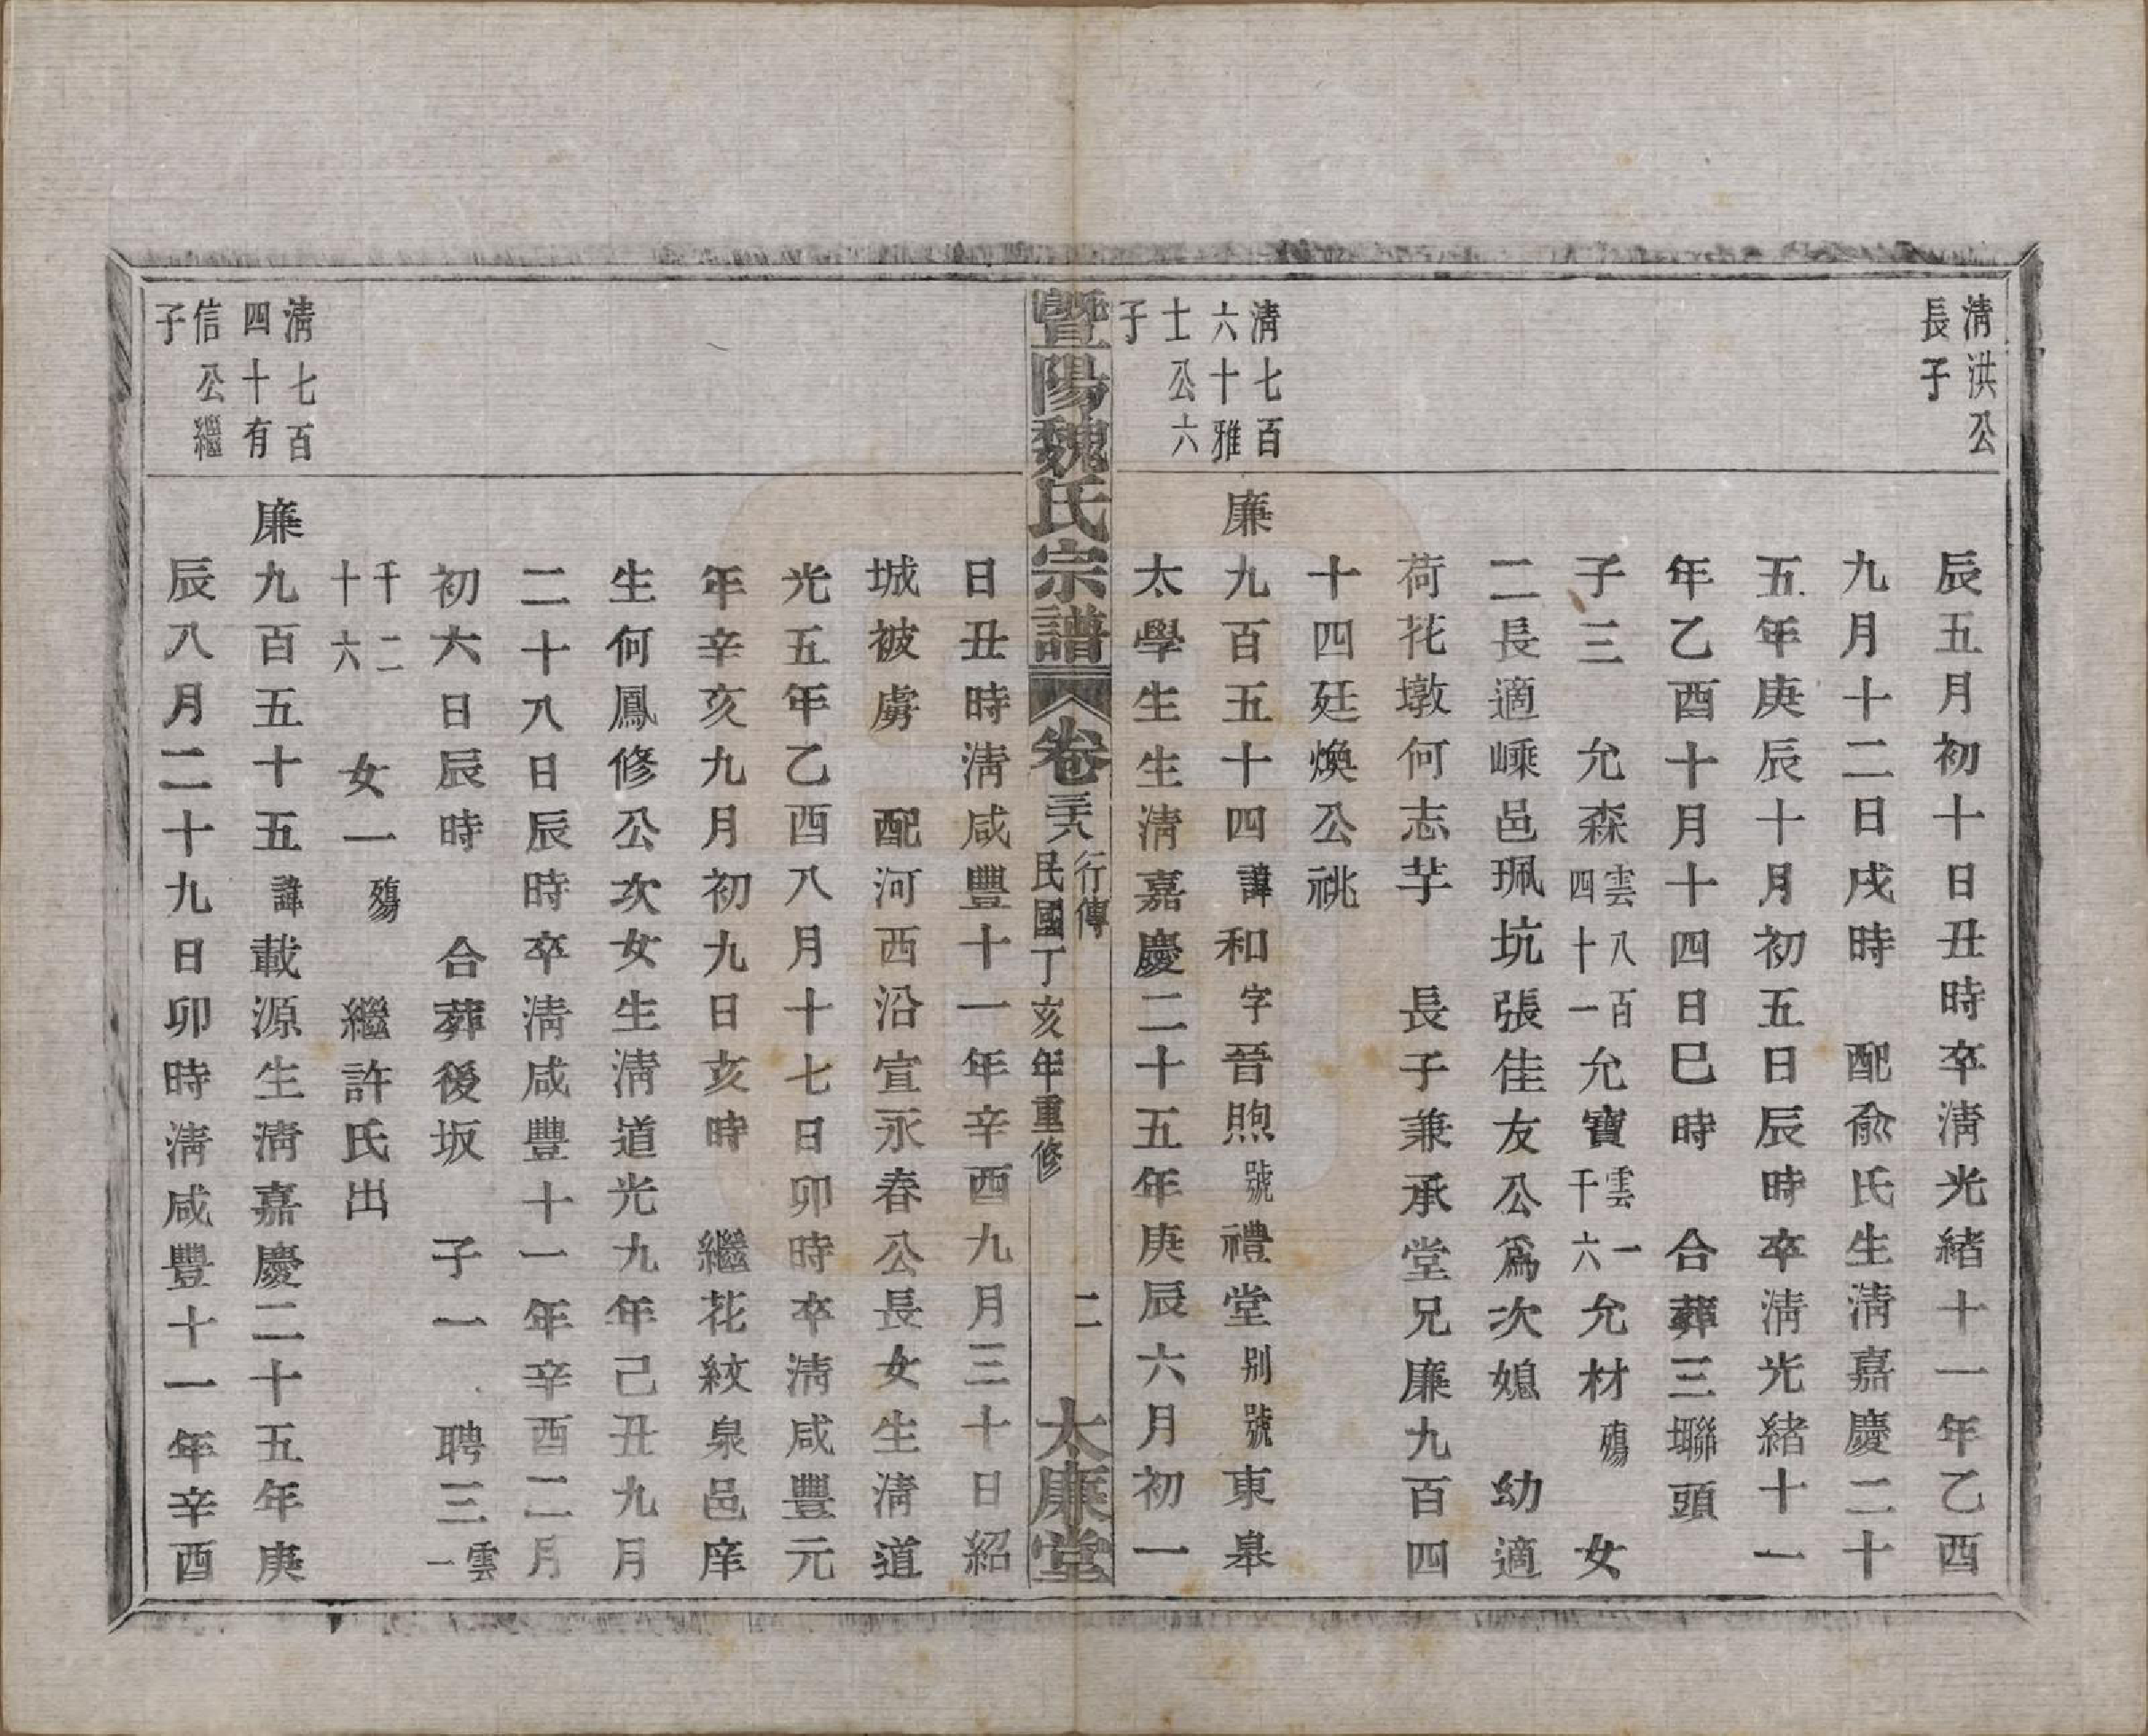 清洪公
長子
辰五月初十日丑時卒清光緒十一年乙酉
九月十二日戌時 配俞氏生清嘉慶二十
五年庚辰十月初五日辰時卒清光緒十一
年乙酉十月十四日巳時 合葬三塒頭
子三 允森雲八百四十一允寶雲一千六允材殤 女
二長適嵊邑珮坑張佳友公爲次媳 幼適
荷花墩何志芋 長子兼承堂兄廉九百四
十四廷煥公祧
清七百
六十雅
士公六
子
廉九百五十四諱和字晉煦號禮堂別號東皋
太學生生清嘉慶二十五年庚辰六月初一
暨陽魏氏宗譜 卷三八 行傳 民國丁亥年重修 二 太廉堂
日丑時清咸豐十一年辛酉九月三十日紹
城被虜 配河西沿宣永春公長女生清道
光五年乙酉八月十七日卯時卒清咸豐元
年辛亥九月初九日亥時 繼花紋泉邑庠
生何鳳修公次女生清道光九年己丑九月
二十八日辰時卒清咸豐十一年辛酉二月
初六日辰時 合葬後坂 子一 聘三雲一
千二十六 女一殤 繼許氏出
清七百
四十有
信公繼
子
廉九百五十五諱載源生清嘉慶二十五年庚
辰八月二十九日卯時清咸豐十一年辛酉